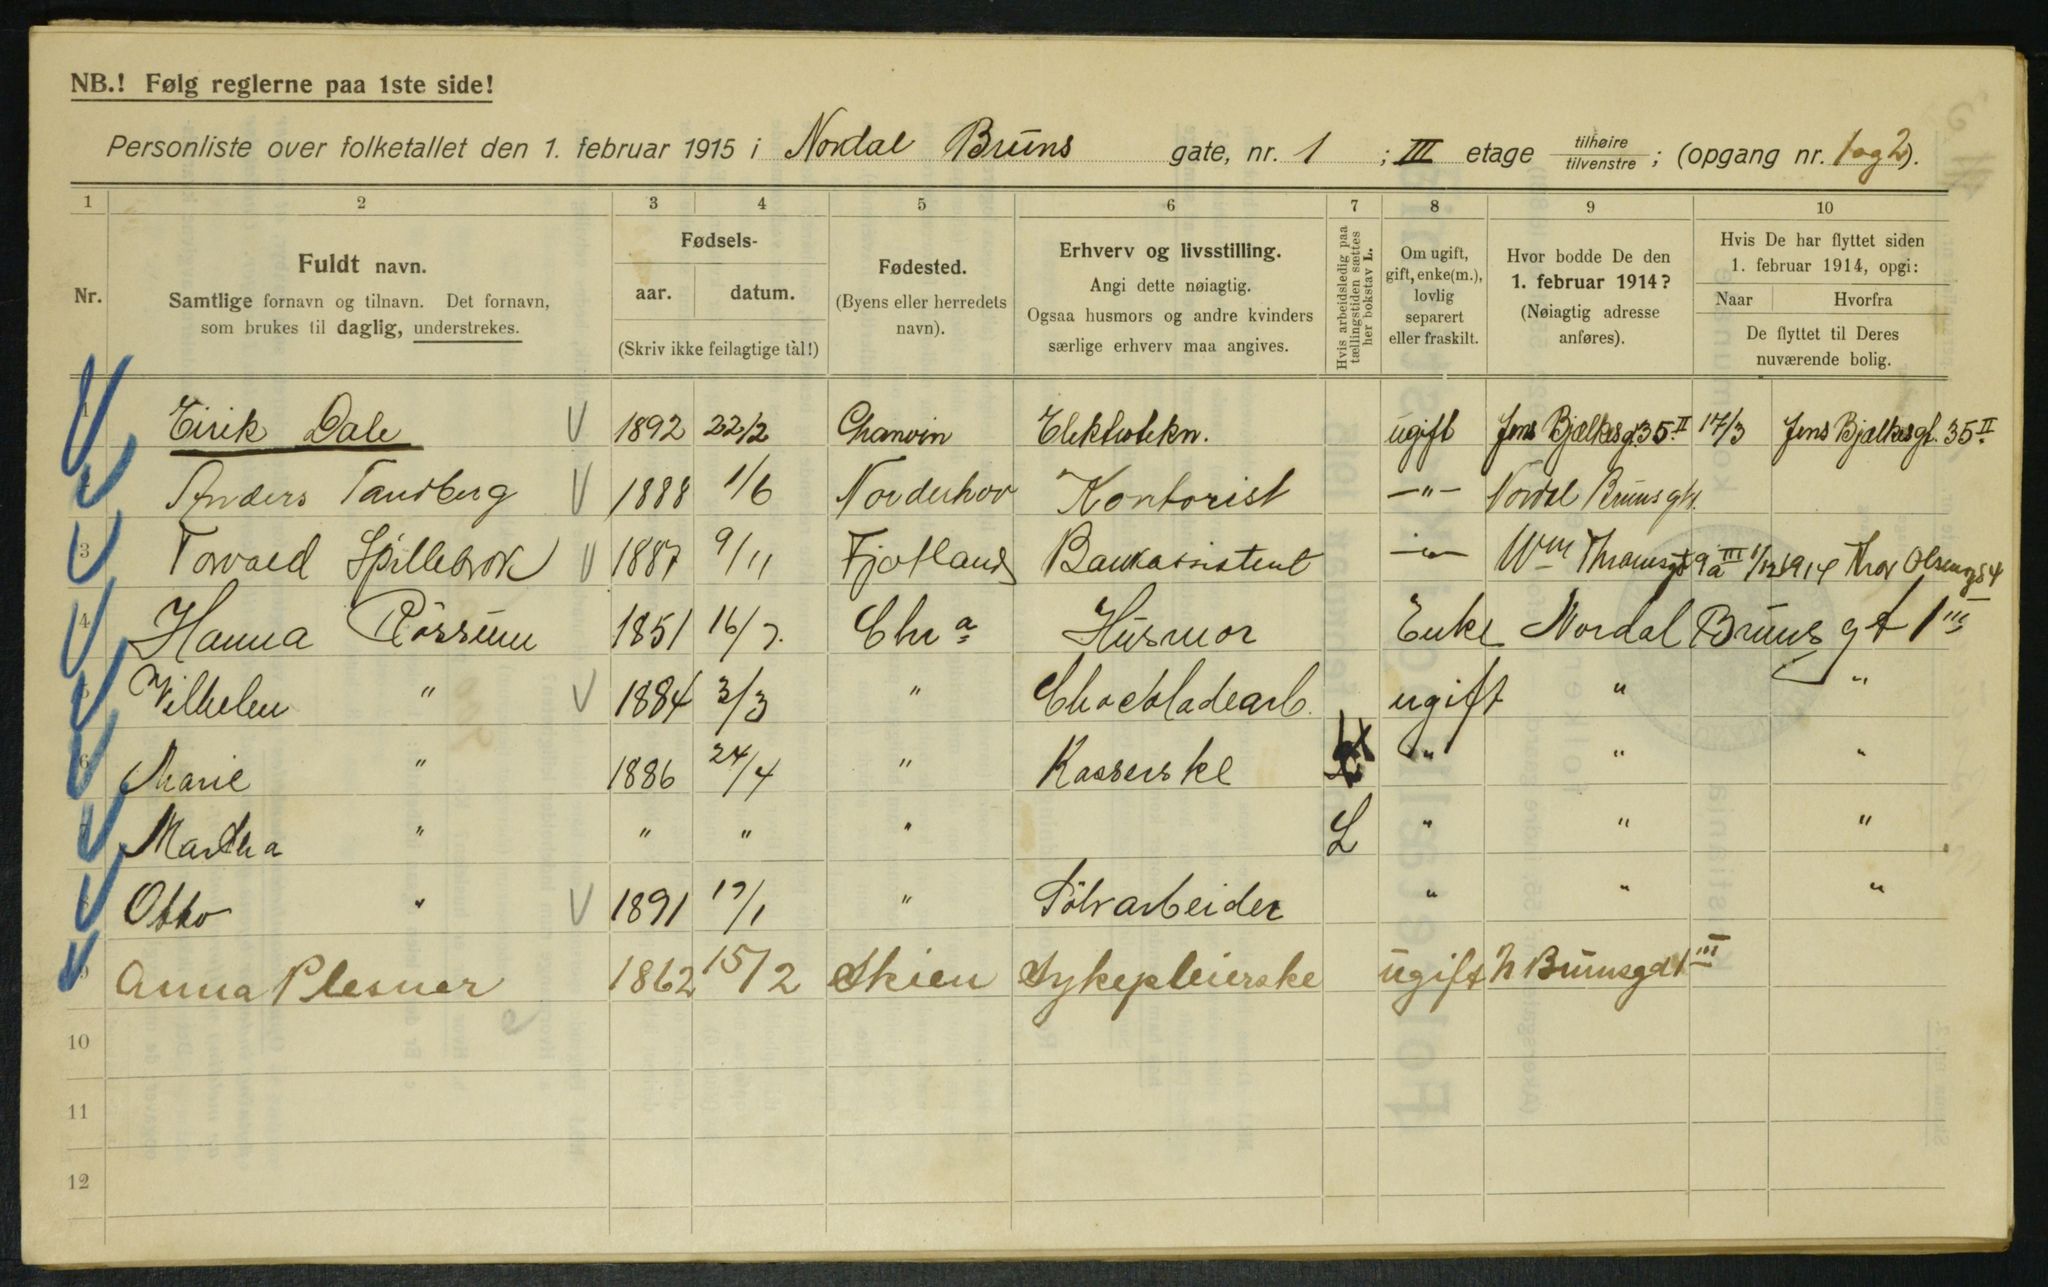 NB.! Følg reglerne paa 1ste side!
Personliste over folketallet den 1. februar 1915 i Nordal Bruns gate, nr. 1 ; III etage tilhøire tilvenstre ; (opgang nr. 1 og 2).
1 2 3 4 5 6 7 8 9 10
Nr.
Fuldt navn.
Samtlige fornavn og tilnavn. Det fornavn,
som brukes til daglig, understrekes.
Fødsels-
aar. datum.
(Skriv ikke feilagtige tal!)
Fødested.
(Byens eller herredets
navn).
Erhverv og livsstilling.
Angi dette nøiagtig.
Ogsaa husmors og andre kvinders
særlige erhverv maa angives.
Hvis arbeidsledig paa
tællingstiden sættes
her bokstav L.
Om ugift,
gift, enke(m.),
lovlig
separert
eller fraskilt.
Hvor bodde De den
1. februar 1914?
(Nøiagtig adresse
anføres).
Hvis De har flyttet siden
1. februar 1914, opgi:
Naar Hvorfra
De flyttet til Deres
nuværende bolig.
1 Eirik Dale 1892 22/2 Elektrotekn. ugift Jens Bjelkesg. 35 II 17/3 Jens Bjelkesgt. 35 II
Anders Tandberg 1888 1/6 Norderhov Kontorist -"- Nordal Brunsgt.
3 Torvald Spillebrok 1887 9/11 Fjotland Bankassistent -"- Wm Thranesgt 9a III 1/12 1914 Thor Olsensgt 4
4 Hanna Rössum 1851 16/7. Chra Husmor Enke Nordal Bruns gt 1 III
5 Vilhelm " 1884 3/3 " Chockladearb. ugift " "
6 Marie " 1886 24/4 " Kasserske " " "
Martha " " " " L " " "
8 Otto " 1891 17/1 " Sölvarbeider " " "
9 Anna Plesner 1862 15/2 Skien Sykepleierske ugift N Brunsgt 1 III
10
11
12